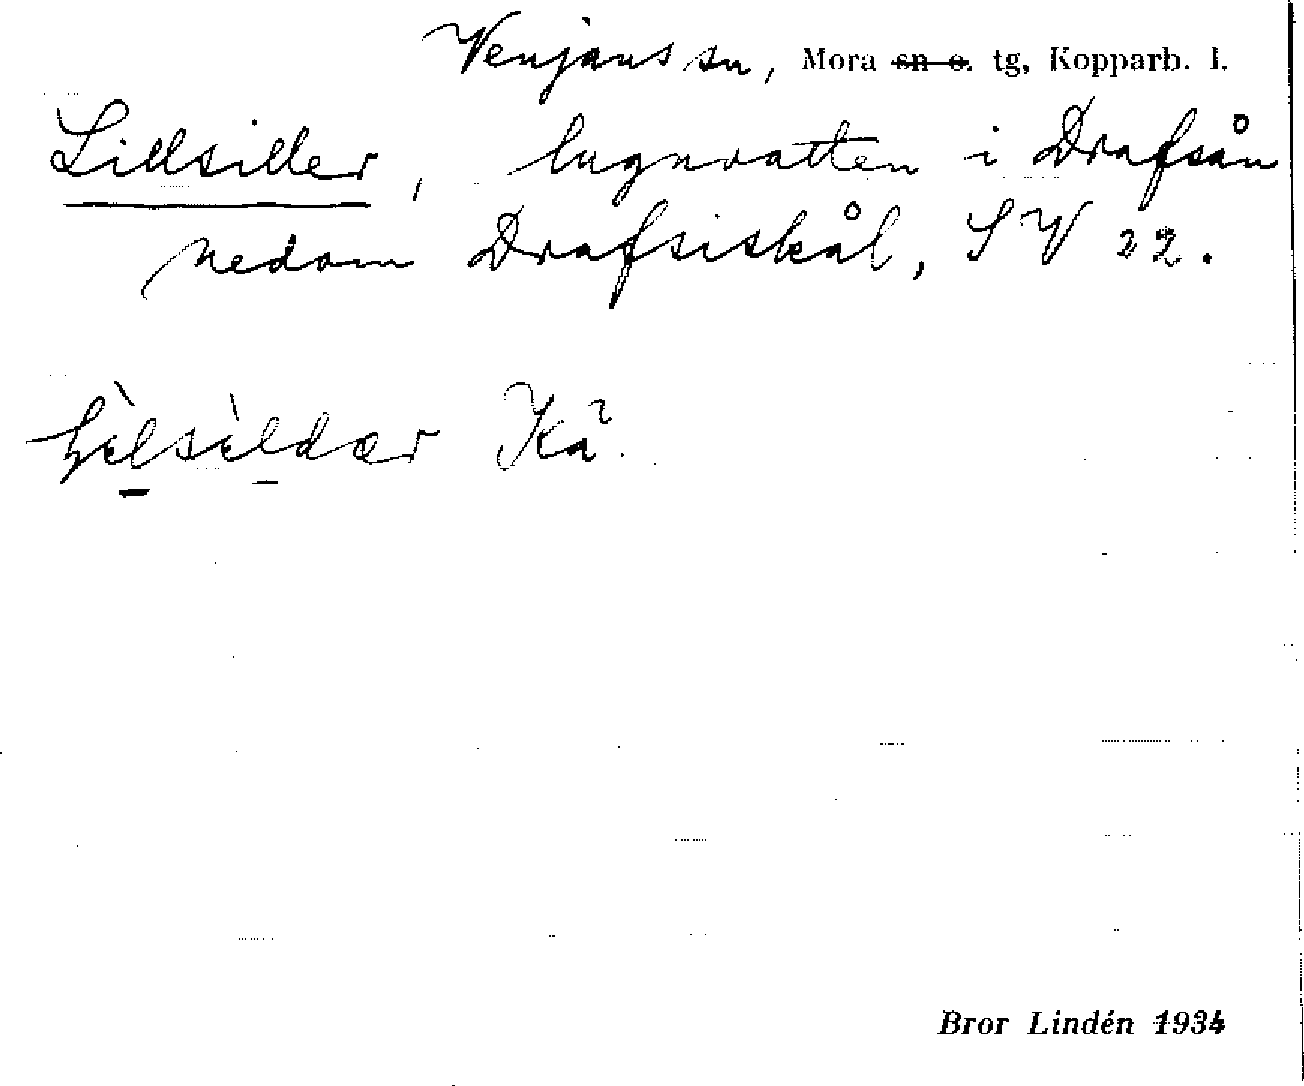 Venjans sn, Mora sn o. tg, Kopparb. l.
Lillsiller, lugnvatten i Drafsån
nedom Drafsiskål, SV 22.
lìlsìldær Kå.
Bror Lindén 1934